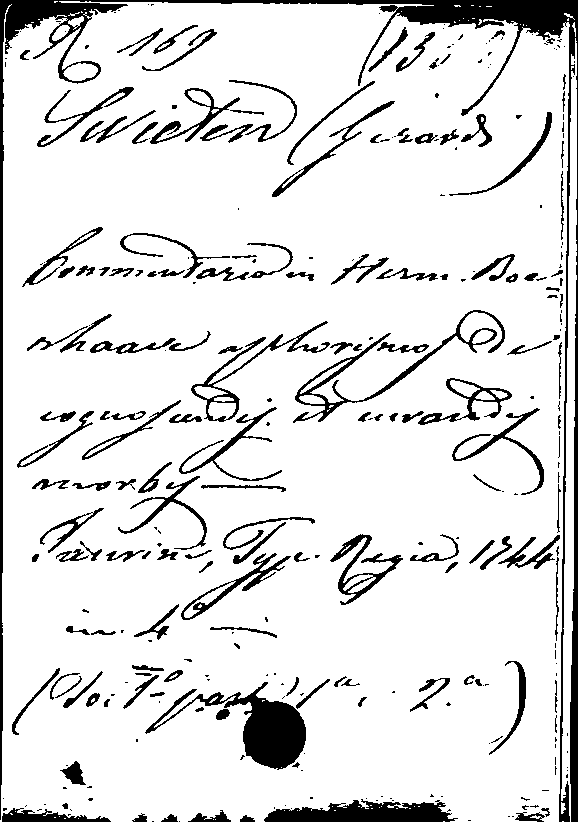 R. 169
Swieten (Girardi)
Commentaria in Herm. Boe=
rhaave aphorismos De
cognoscendis. et curandis
morbis —
Taurini, Typ. Regia, 1744
in 4º —
(To: 1º part. 1ª 2.ª)